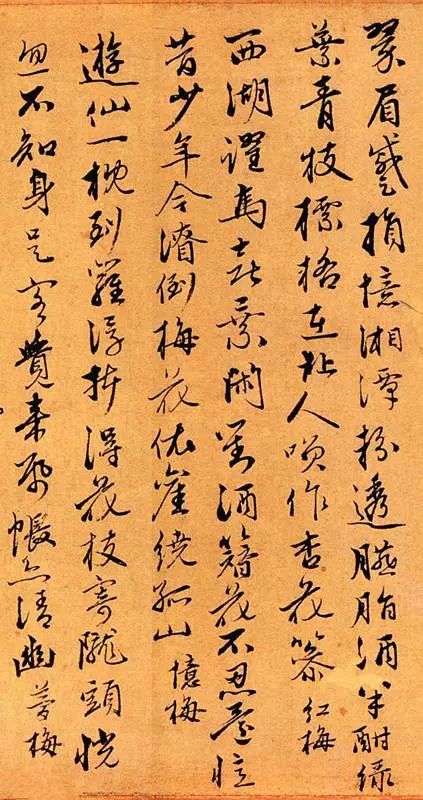 翠眉蹙損憶湘潭粉透臙脂酒半酣綠
葉青枝標格在恥人喚作杏花篸 紅梅
西湖躍馬閑對酒簪花不忍還憶
昔少年今潦倒梅花依舊繞孤山 憶梅
遊仙一枕到羅浮折得花枝寄隴頭恍
忽不知身是客覺來紙帳亦清幽 夢梅